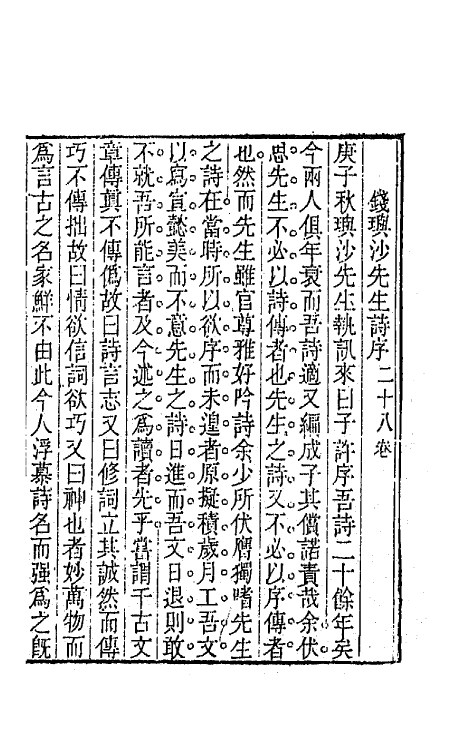 錢璵沙先生詩序二十八卷
庚子秋璵沙先生執訊來曰子許序吾詩二十餘年矣
今兩人俱年衰而吾詩適又編成子其償諾責哉余伏
思先生不必以詩傳者也先生之詩又不必以序傳者
也然而先生雖官尊雅好吟詩余少所伏膺獨嗜先生
之詩在當時所以欲序而未遑者原擬積歲月工吾文
以寫宣懿美而不意先生之詩日進而吾文日退則敢
不就吾所能言者及今述之爲讀者先乎嘗謂千古文
章傳眞不傳僞故曰詩言志又曰修詞立其誠然而傳
巧不傳拙故曰情欲信詞欲巧又曰神也者妙萬物而
爲言古之名家鮮不由此今人浮慕詩名而强爲之旣